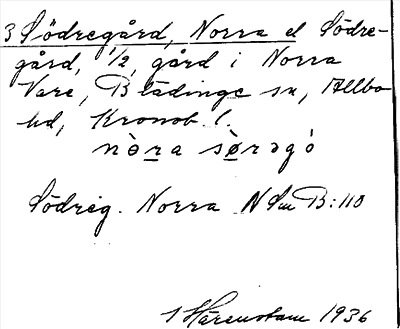 3 Södregård, Norra el Södre-
gård, 1/2, gård i Norra
Vare, Blädinge sn, Allbo
hd, Kronob. l.
nò̱ra sø̱̀rəgó
Södreg. Norra NSm B:110
1936